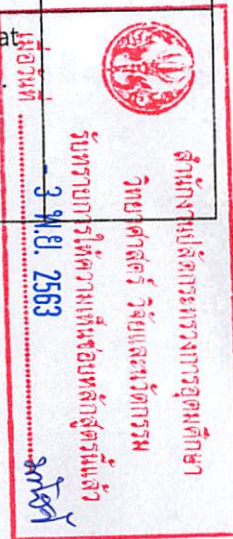 at
สำนักงานปลัดกระทรวงการอุดมศึกษา
วิทยาศาสตร์ วิจัยและนวัตกรรม
รับทราบการให้ความเห็นชอบหลักสูตรนี้แล้ว
เมื่อวันที่ - 3 พ.ย. 2563